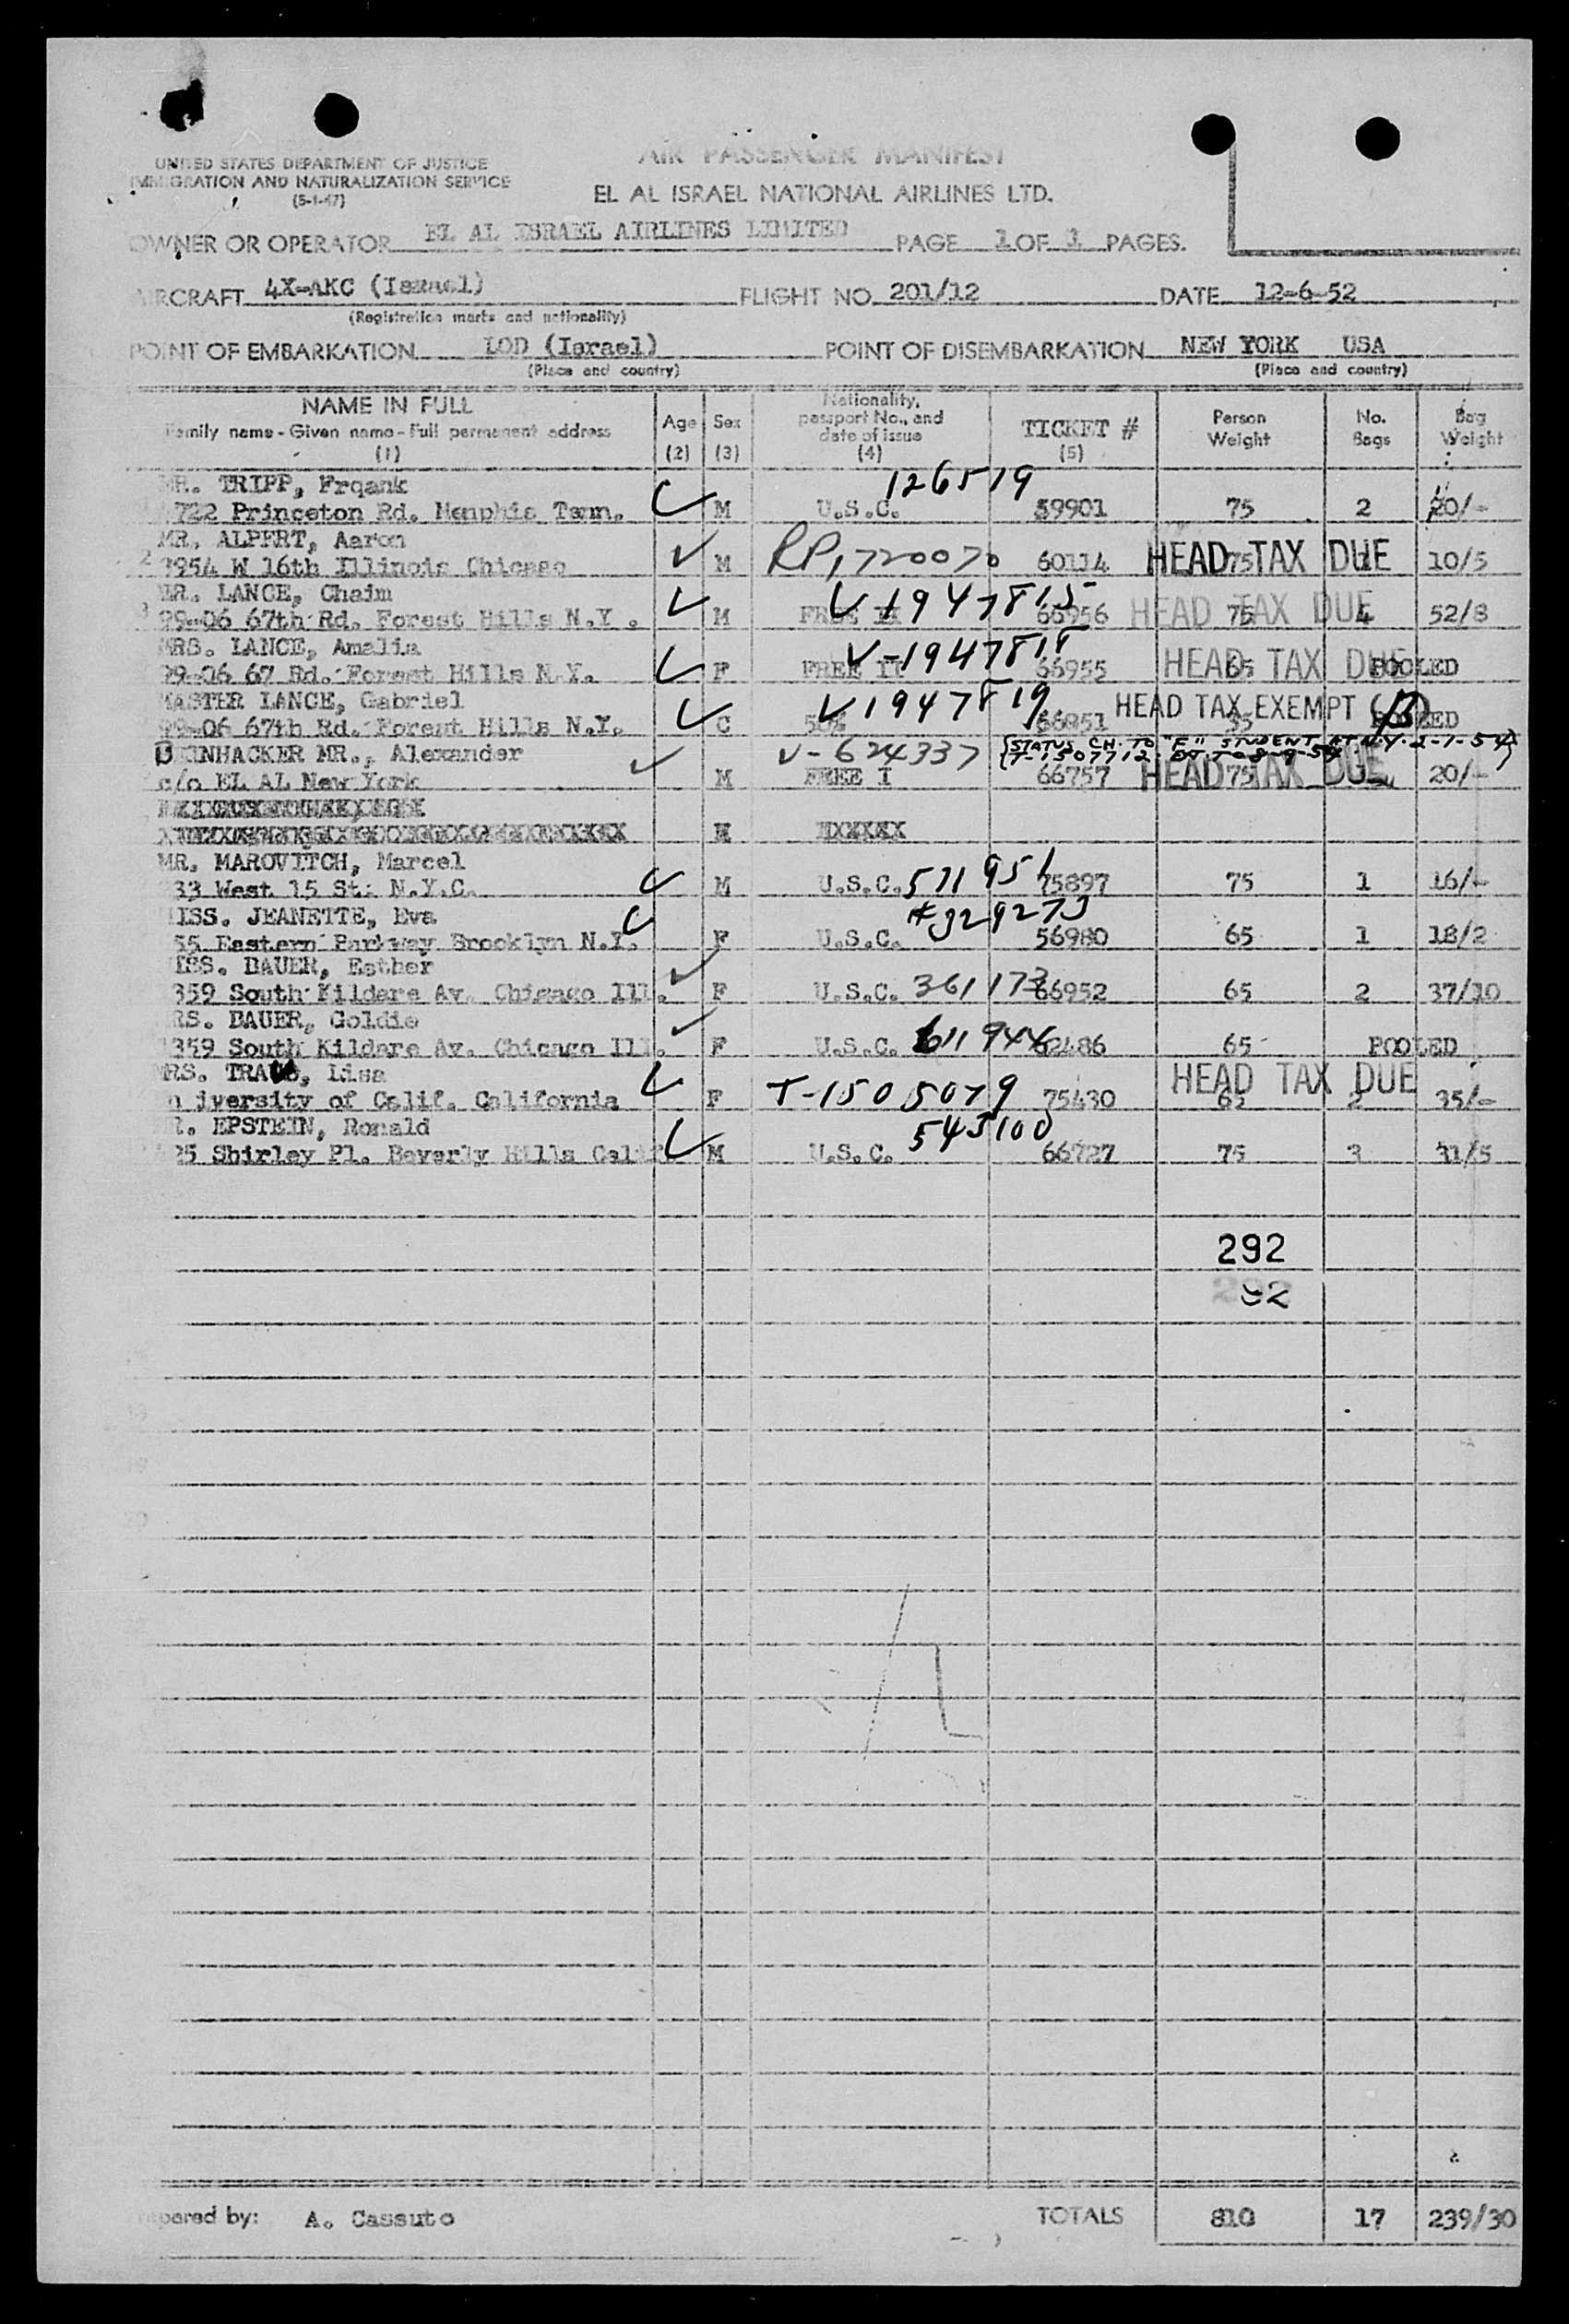 UNITED STATES DEPARTMENT OF JUSTICE
IMMIGRATION AND NATURALIZATION SERVICE
(5-1-47)
AIR PASSENGER MANIFEST
EL AL ISRAEL NATIONAL AIRLINES LTD.
OWNER OR OPERATOR EL AL ISRAEL AIRLINES LIMITED PAGE 1 OF 1 PAGES.
AIRCRAFT 4X-AKC (Israel) FLIGHT NO. 201/12 DATE 12-6-52
(Registration marks and nationality)
POINT OF EMBARKATION LOD (Israel) POINT OF DISEMBARKATION NEW YORK USA
(Place and country) (Place and country)
NAME IN FULL
Family name - Given name - Full permanent address
(1)
Age
(2)
Sex
(3)
Nationality,
passport No., and
date of issue
(4)
TICKET #
(5)
Person
Weight
No.
Bags
Bag
Weight
MR. TRIPP, Frqank 126519
722 Princeton Rd. Memphis Tenn. M U.S.C. 59901 75 2 20/-
MR. ALPERT, Aaron
2 3954 W 16th Illinois Chicago M RP1720070 60114 75 HEAD TAX DUE 10/5
MR. LANCE, Chaim V1947815
3 99-06 67th Rd. Forest Hills N.Y. M FREE II 66956 75 HEAD TAX DUE 4 52/8
MRS. LANCE, Amalia V-1947818
99-06 67 Rd. Forest Hills N.Y. F FREE II 66955 65 HEAD TAX DUE POOLED
MASTER LANCE, Gabriel V1947819 HEAD TAX EXEMPT
99-06 67th Rd. Forest Hills N.Y. C 50% 66951 35 POOLED
MR., Alexander V-624337 (STATUS CH. TO "F" STUDENT AT N.Y. 2-1-54
T-1507712. EXT TO 8-9-54)
c/o EL AL New York M FREE I 66757 75 HEAD TAX DUE 20/-
MR. MAROVITCH, Marcel
33 West 15 St. N.Y.C. M U.S.C. 511951 75897 75 1 16/-
ISS. JEANETTE, Eva #329273
55 Eastern Parkway Brooklyn N.Y. F U.S.C. 56980 65 1 18/2
ISS. BAUER, Esther
359 South Kildare Av. Chicago Ill. F U.S.C. 361173 66952 65 2 37/10
RS. BAUER, Goldie
359 South Kildare Av. Chicago Ill. F U.S.C. 611944 62486 65 POOLED
MRS. Lisa HEAD TAX DUE
niversity of Calif. California F T-1505079 75430 65 2 35/-
R. EPSTEIN, Ronald 543100
25 Shirley Pl. Beverly Hills Calif. M U.S.C. 66727 75 3 31/5
292
292
Prepared by: A. Cassuto TOTALS 810 17 239/30